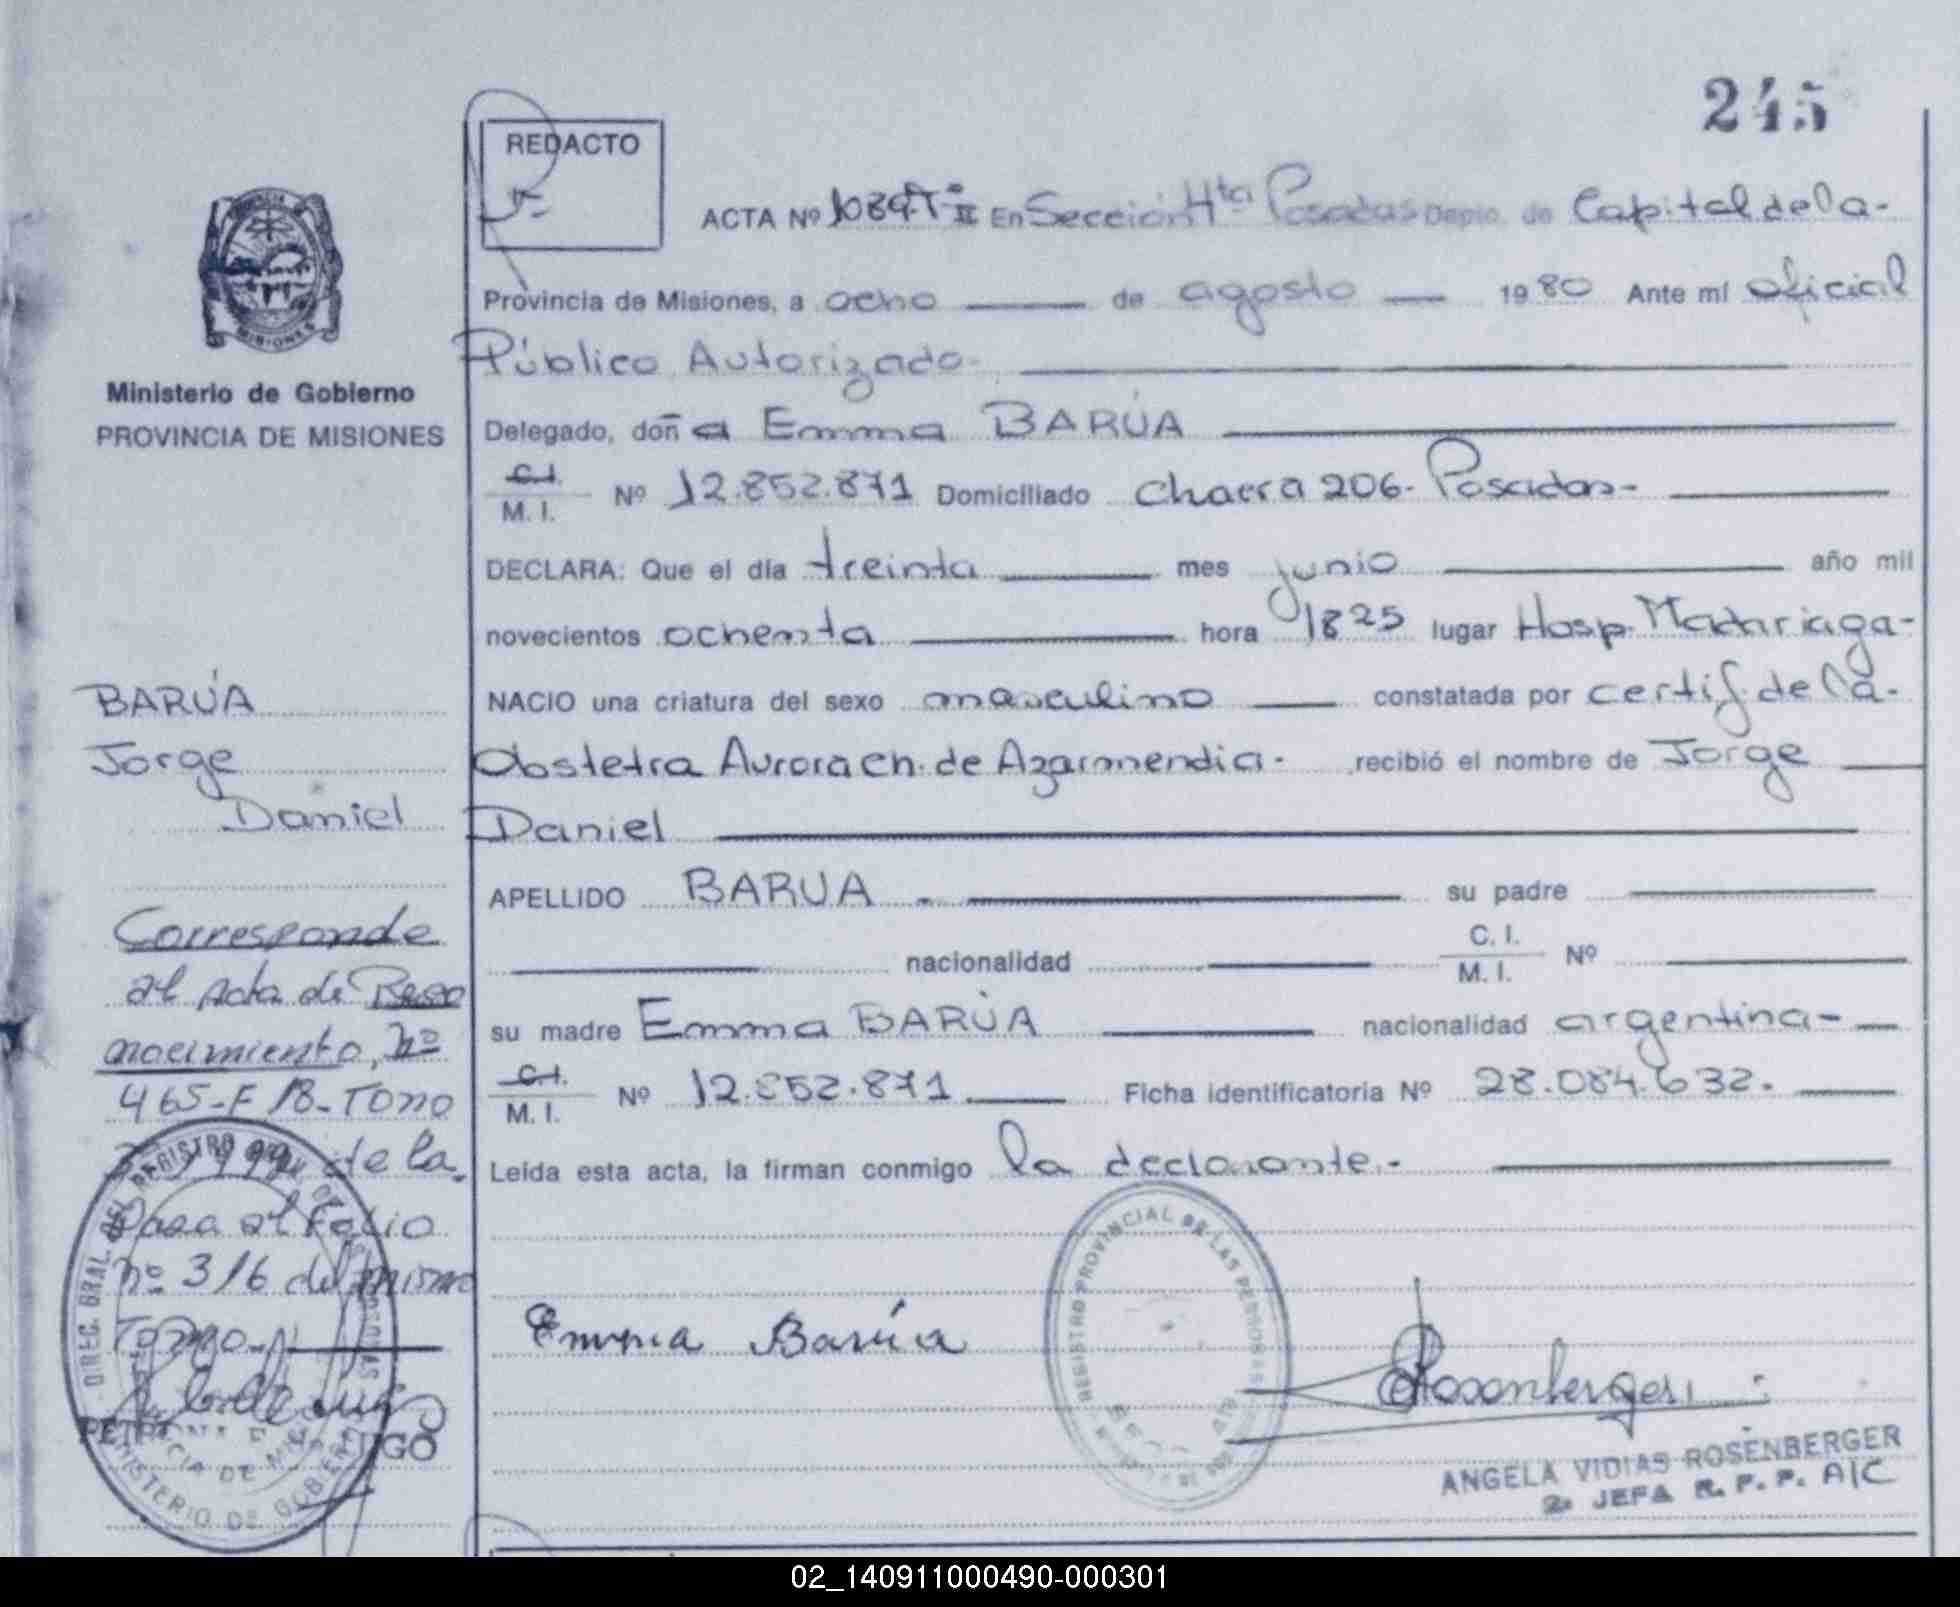 245
REDACTO
ACTA Nº 1089-Tº II En Sección 4ta Posadas Depto. de Capital de la-
Provincia de Misiones, a ocho de agosto 1980 Ante mí oficial
Público Autorizado-
Ministerio de Gobierno
PROVINCIA DE MISIONES
Delegado, doña Emma BARÚA
C.I.
M. I. Nº 12.852.871 Domiciliado Chacra 206- Posadas-
DECLARA: Que el día treinta mes junio año mil
novecientos ochenta hora 1825 lugar Hosp. Madariaga-
NACIO una criatura del sexo masculino constatada por certif. de la-
Obstetra Aurora Ch. de Azarmendia- recibió el nombre de Jorge
Daniel
BARÚA
Jorge
Daniel
APELLIDO BARUA - su padre
nacionalidad C. I.
M. I. Nº
su madre Emma BARÚA nacionalidad argentina-
C.I.
M. I. Nº 12.852.871. Ficha identificatoria Nº 28.084.632.
Leída esta acta, la firman conmigo la declarante.-
Corresponde
al Acta de Reco
nocimiento, nº
465-F 18-Tomo
de la
Pasa al Folio
nº 316 del mismo
Tomo-
DIREC. GRAL. DEL REGISTRO
MINISTERIO DE GOBIERNO
Emma Barúa
REGISTRO PROVINCIAL DE LAS PERSONAS
Rosenberger
ANGELA VIDIAS ROSENBERGER
2ª JEFA R. P. P. A/C
02_140911000490-000301